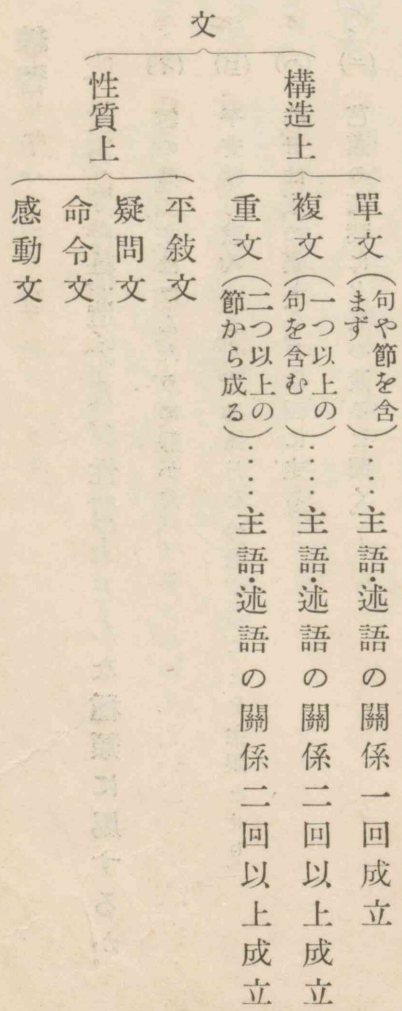 文
構造上
單文(句や節を含まず)……主語・述語の關係一回成立
複文(一つ以上の句を含む)……主語・述語の關係二回以上成立
重文(二つ以上の節から成る)……主語・述語の關係二回以上成立
性質上
平敍文
疑問文
命令文
感動文